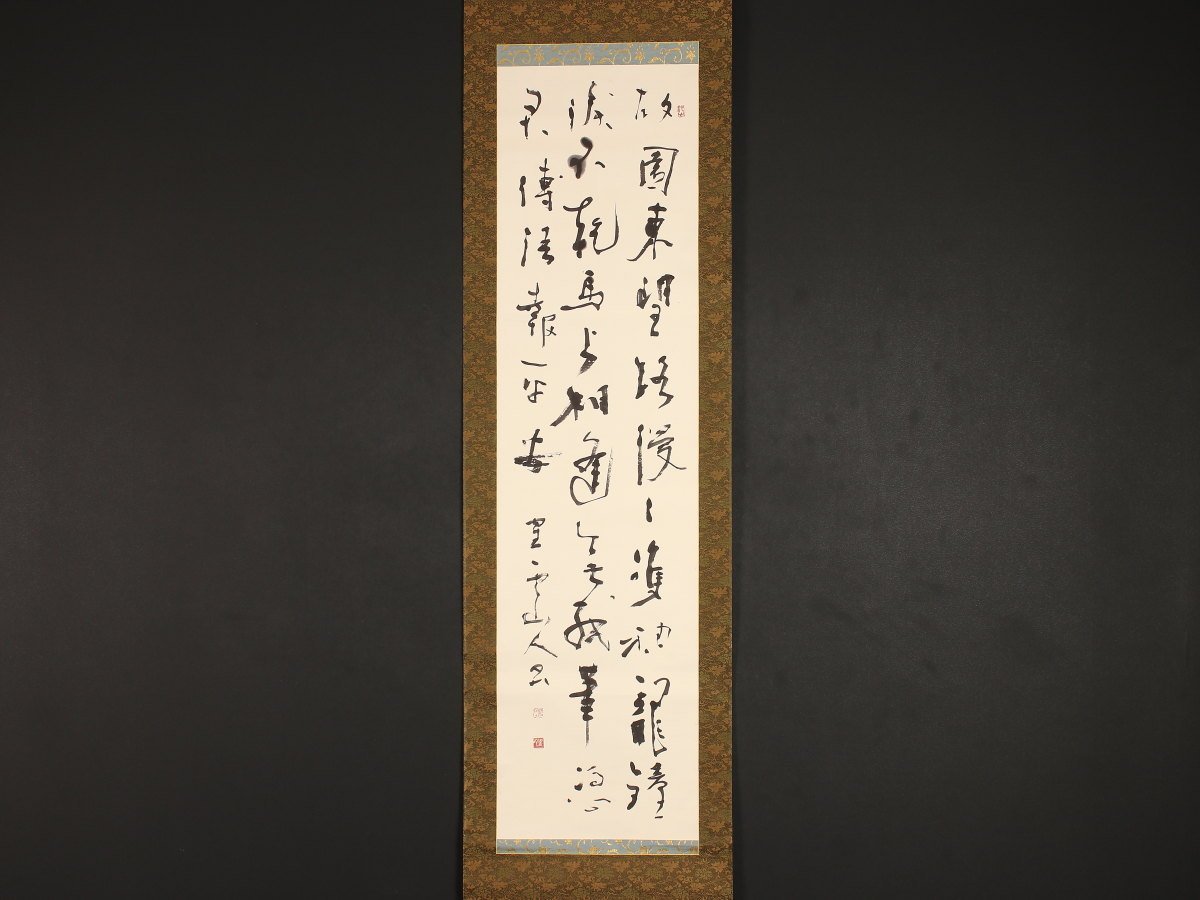 故園東望路漫々双袖龍鐘
涙不乾馬上相逢無紙筆憑
君傳語報平安 雲山人書